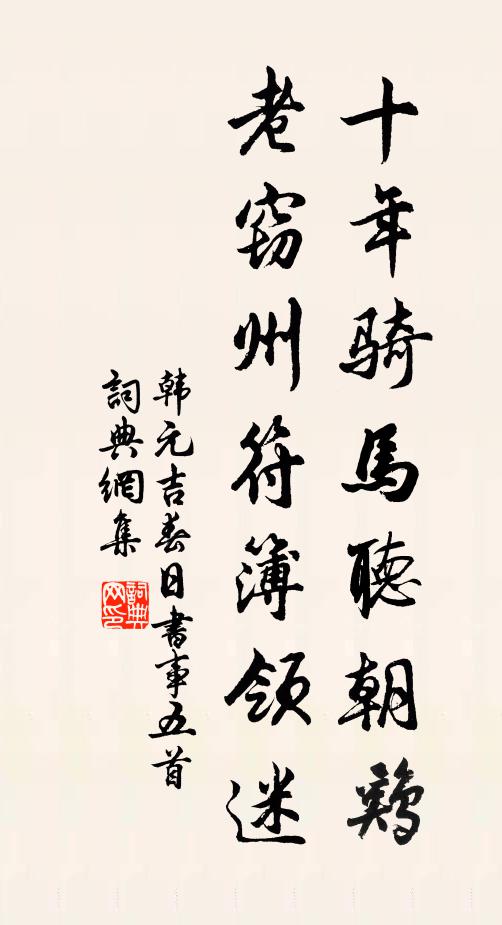 十年骑馬聽朝鷄
老窃州符簿领迷
韩元吉春日書事五首
詞典網集
詞典网印